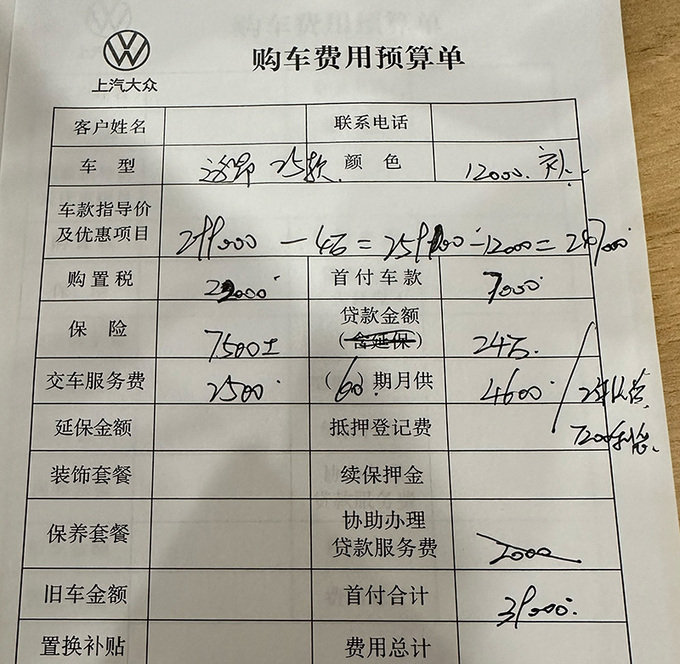 上汽大众
购车费用预算单
客户姓名 联系电话
车型 途昂 25款. 颜色 12000.
车款指导价
及优惠项目 299000 - 4万 = 259000 - 12000 = 247000
购置税 22000 首付车款 7000
保险 7500± 贷款金额
(含延保) 24万.
交车服务费 2500 (60)期月供 4600
延保金额 抵押登记费 7200利息.
装饰套餐 续保押金
保养套餐 协助办理
贷款服务费 2000
旧车金额 首付合计 39000.
置换补贴 费用总计